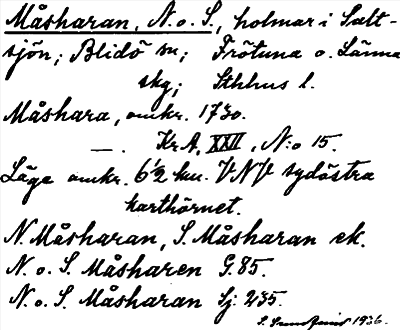 Måsharan, N. o. S., holmar i Salt-
sjön; Blidö sn; Frötuna o. Länna
skg; Sthlms l.
Måshara, omkr. 1730.
— . Kr A, XXII, N:o 15.
Läge omkr. 6½ km. VNV sydöstra
karthörnet.
N. Måsharan, S. Måsharan ek.
N. o. S. Måsharen G. 85.
N. o. S. Måsharan Sj: 235.
1936.